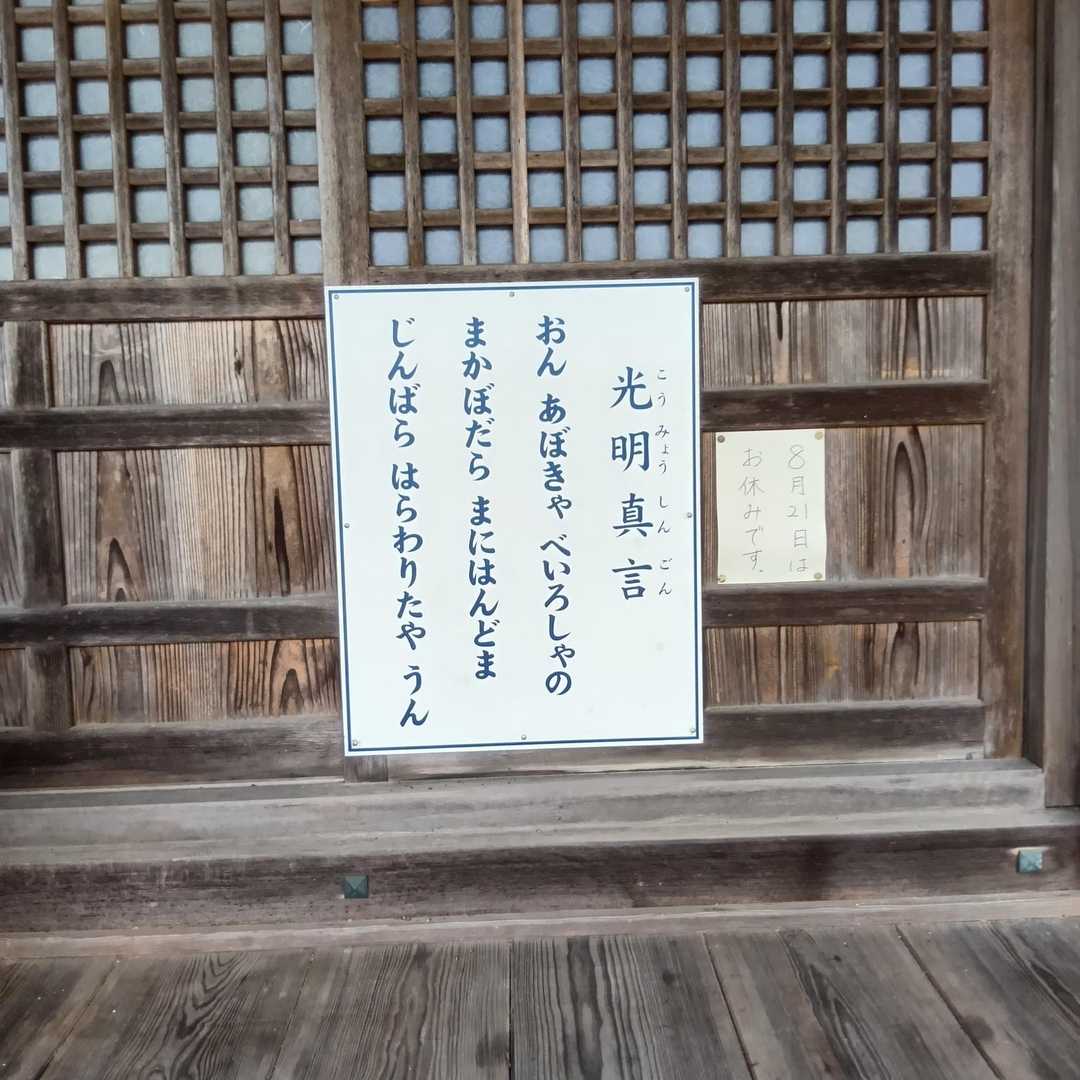 8月21日は
お休みです.
光明真言
こうみょうしんごん
おん あぼきゃ べいろしゃの
まかぼだら まにはんどま
じんばら はらわりたや うん